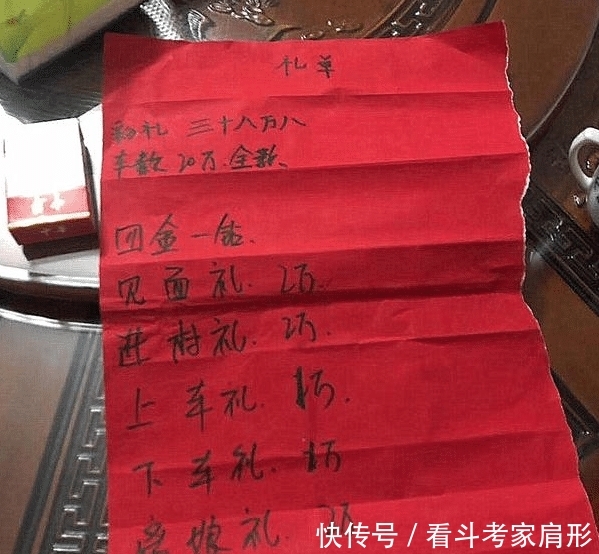 礼单
彩礼 三十八万八
车款20万.全款、
四金一钻.
见面礼.2万.
进村礼.2万.
上车礼.1万.
下车礼.1万
离娘礼.
快传号 / 看斗考家肩形